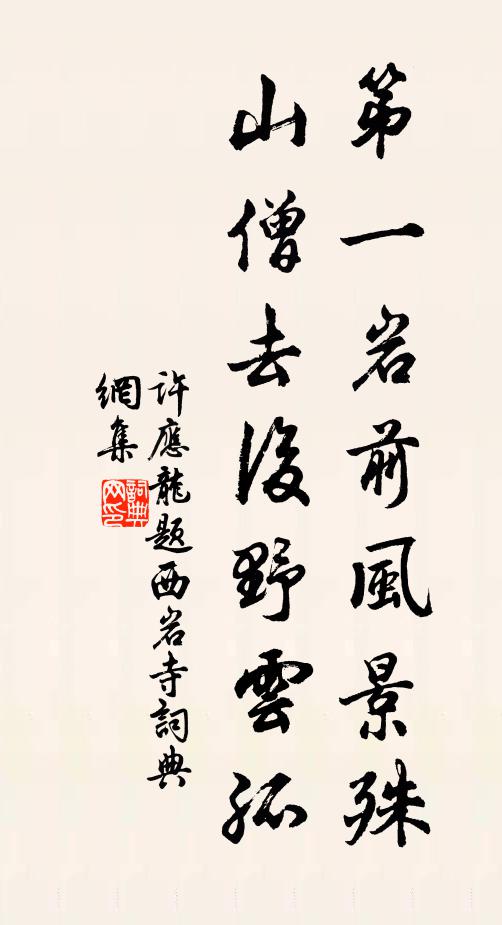 第一岩前風景殊
山僧去後野雲孤
許應龍題西岩寺詞典
網集
詞典
网印